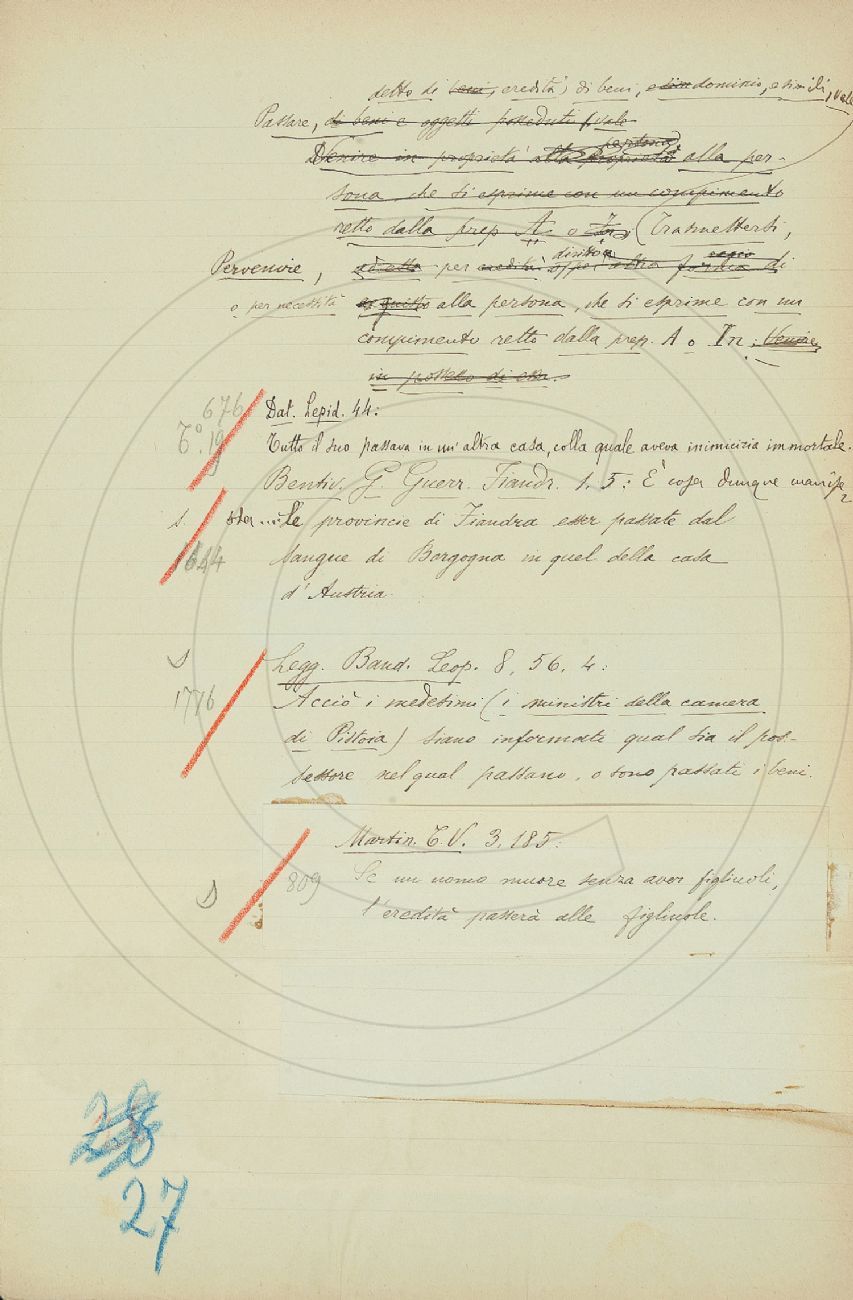 detto di beni, eredità, di beni, e sim dominio, e simili, vale
Passare, di beni e oggetti posseduti, vale
persona
Venire in proprietà alla proprietà alla per-
sona, che si esprime con un compimento
retto dalla prep. A o In. (Trasmettersi,
diritto
Pervenire, per eredità oppo altra forma di
o per necessità questo alla persona, che si esprime con un
compimento retto dalla prep. A o In. Venire
in possesso di essa.
676 Dat. Lepid. 44:
T° 19 Tutto il suo passava in un'altra casa, colla quale aveva inimicizia immortale.
Bentiv. G. Guerr. Fiandr. 1, 5: È cosa dunque manife
S. sta ... Le provincie di Fiandra esser passate dal
1644 sangue di Borgogna in quel della casa
d'Austria.
S Legg. Band. Leop. 8, 56, 4:
1776 Acciò i medesimi (i ministri della camera
di Pistoia) siano informati qual sia il pos-
sessore nel qual passano, o sono passati i beni.
Martin. T. V. 3, 185:
S 809 Se un uomo muore senza aver figliuoli,
l'eredità passerà alle figliuole.
28
27